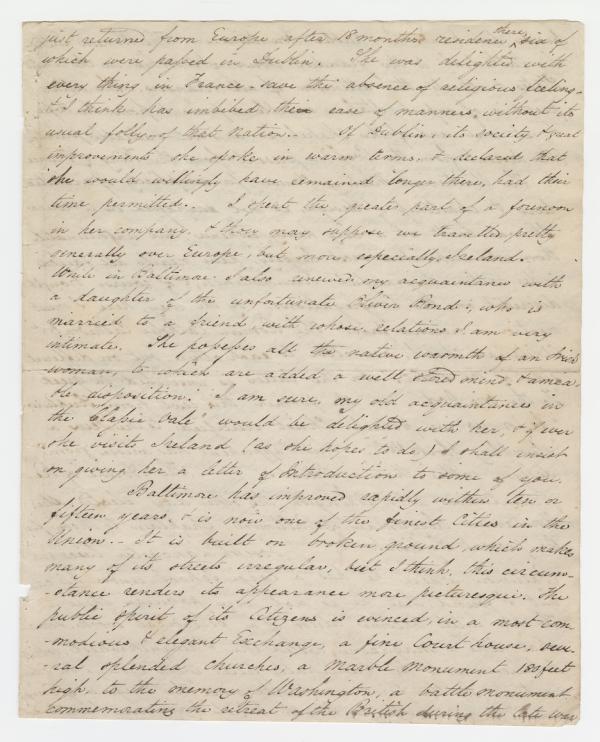 just returned from Europe after 18 months residence there, six of
which were passed in Dublin. She was delighted with
every thing in France save the absence of religious feeling
& I think has imbibed their ease of manners, without its
usual folly, of that Nation. Of Dublin, its society, &
improvements she spoke in warm terms, & declared that
she would willingly have remained longer there, had their
time permitted. I spent the greater part of a forenoon
in her company, & thou may suppose we travelled pretty
generally over Europe, but more especially Ireland.
While in Baltimore I also renewed my acquaintance with
a daughter of the unfortunate Oliver Bond, who is
married to a friend with whose relations I am very
intimate. She possesses all the native warmth of an Irish
woman, to which are added a well stored mind, & amea-
ble disposition. I am sure, my old acquaintances in
the Classic Vale would be delighted with her, & if ever
she visits Ireland (as she hopes to do) I shall insist
on giving her a letter of Introduction to some of you.
Baltimore has improved rapidly within ten or
fifteen years, & is now one of the finest Cities in the
Union. It is built on broken ground, which makes
many of its streets irregular, but I think, this circum-
-stance renders its appearance more picturesque. The
public spirit of its Citizens is evinced, in a most com-
-modious & elegant Exchange, a fine Court house, seve-
-ral splended churches, a Marble Monument 180 feet
high, to the memory of Washington, a battle monument
commemorating the retreat of the British during the late war